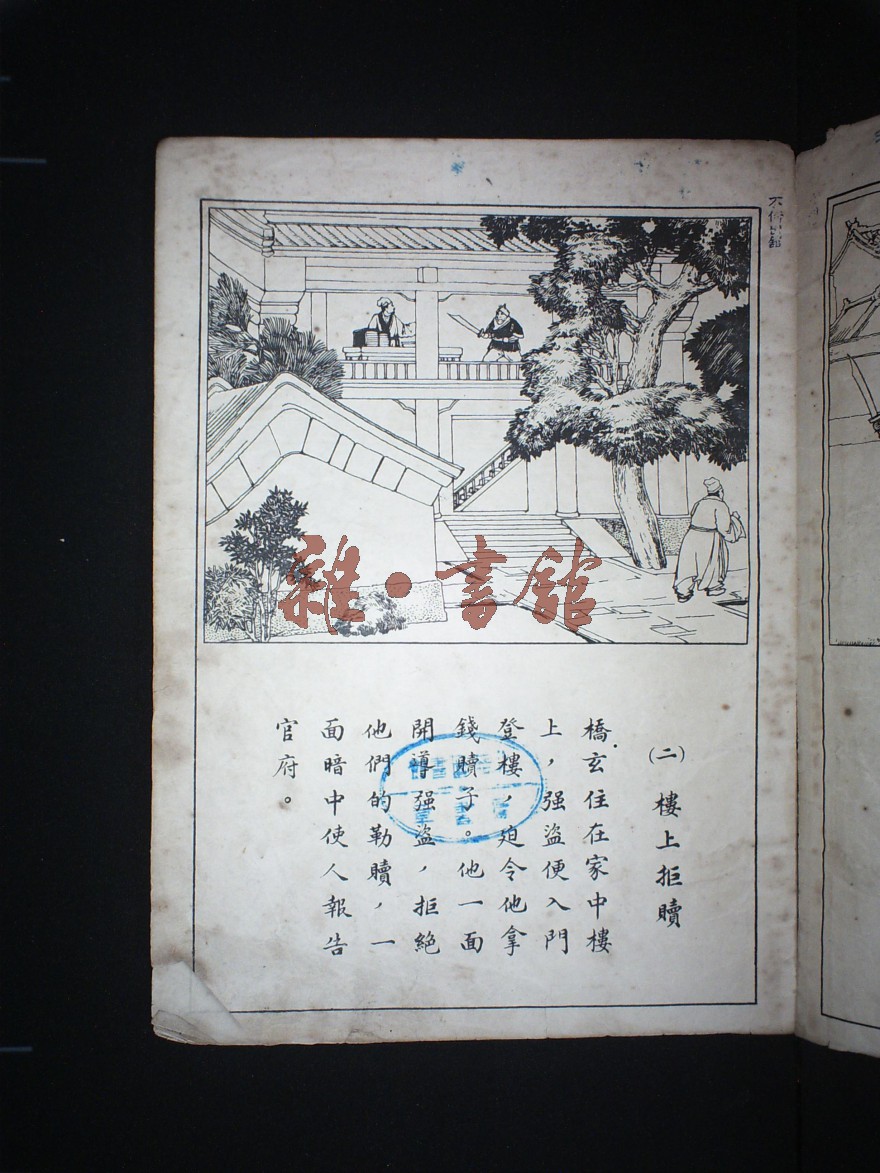 (二) 樓上拒贖
橋玄住在家中樓
上，强盜便入門
登樓，迫令他拿
錢贖子。他一面
開導强盜，拒絕
他們的勒贖，一
面暗中使人報告
官府。
雜·書館